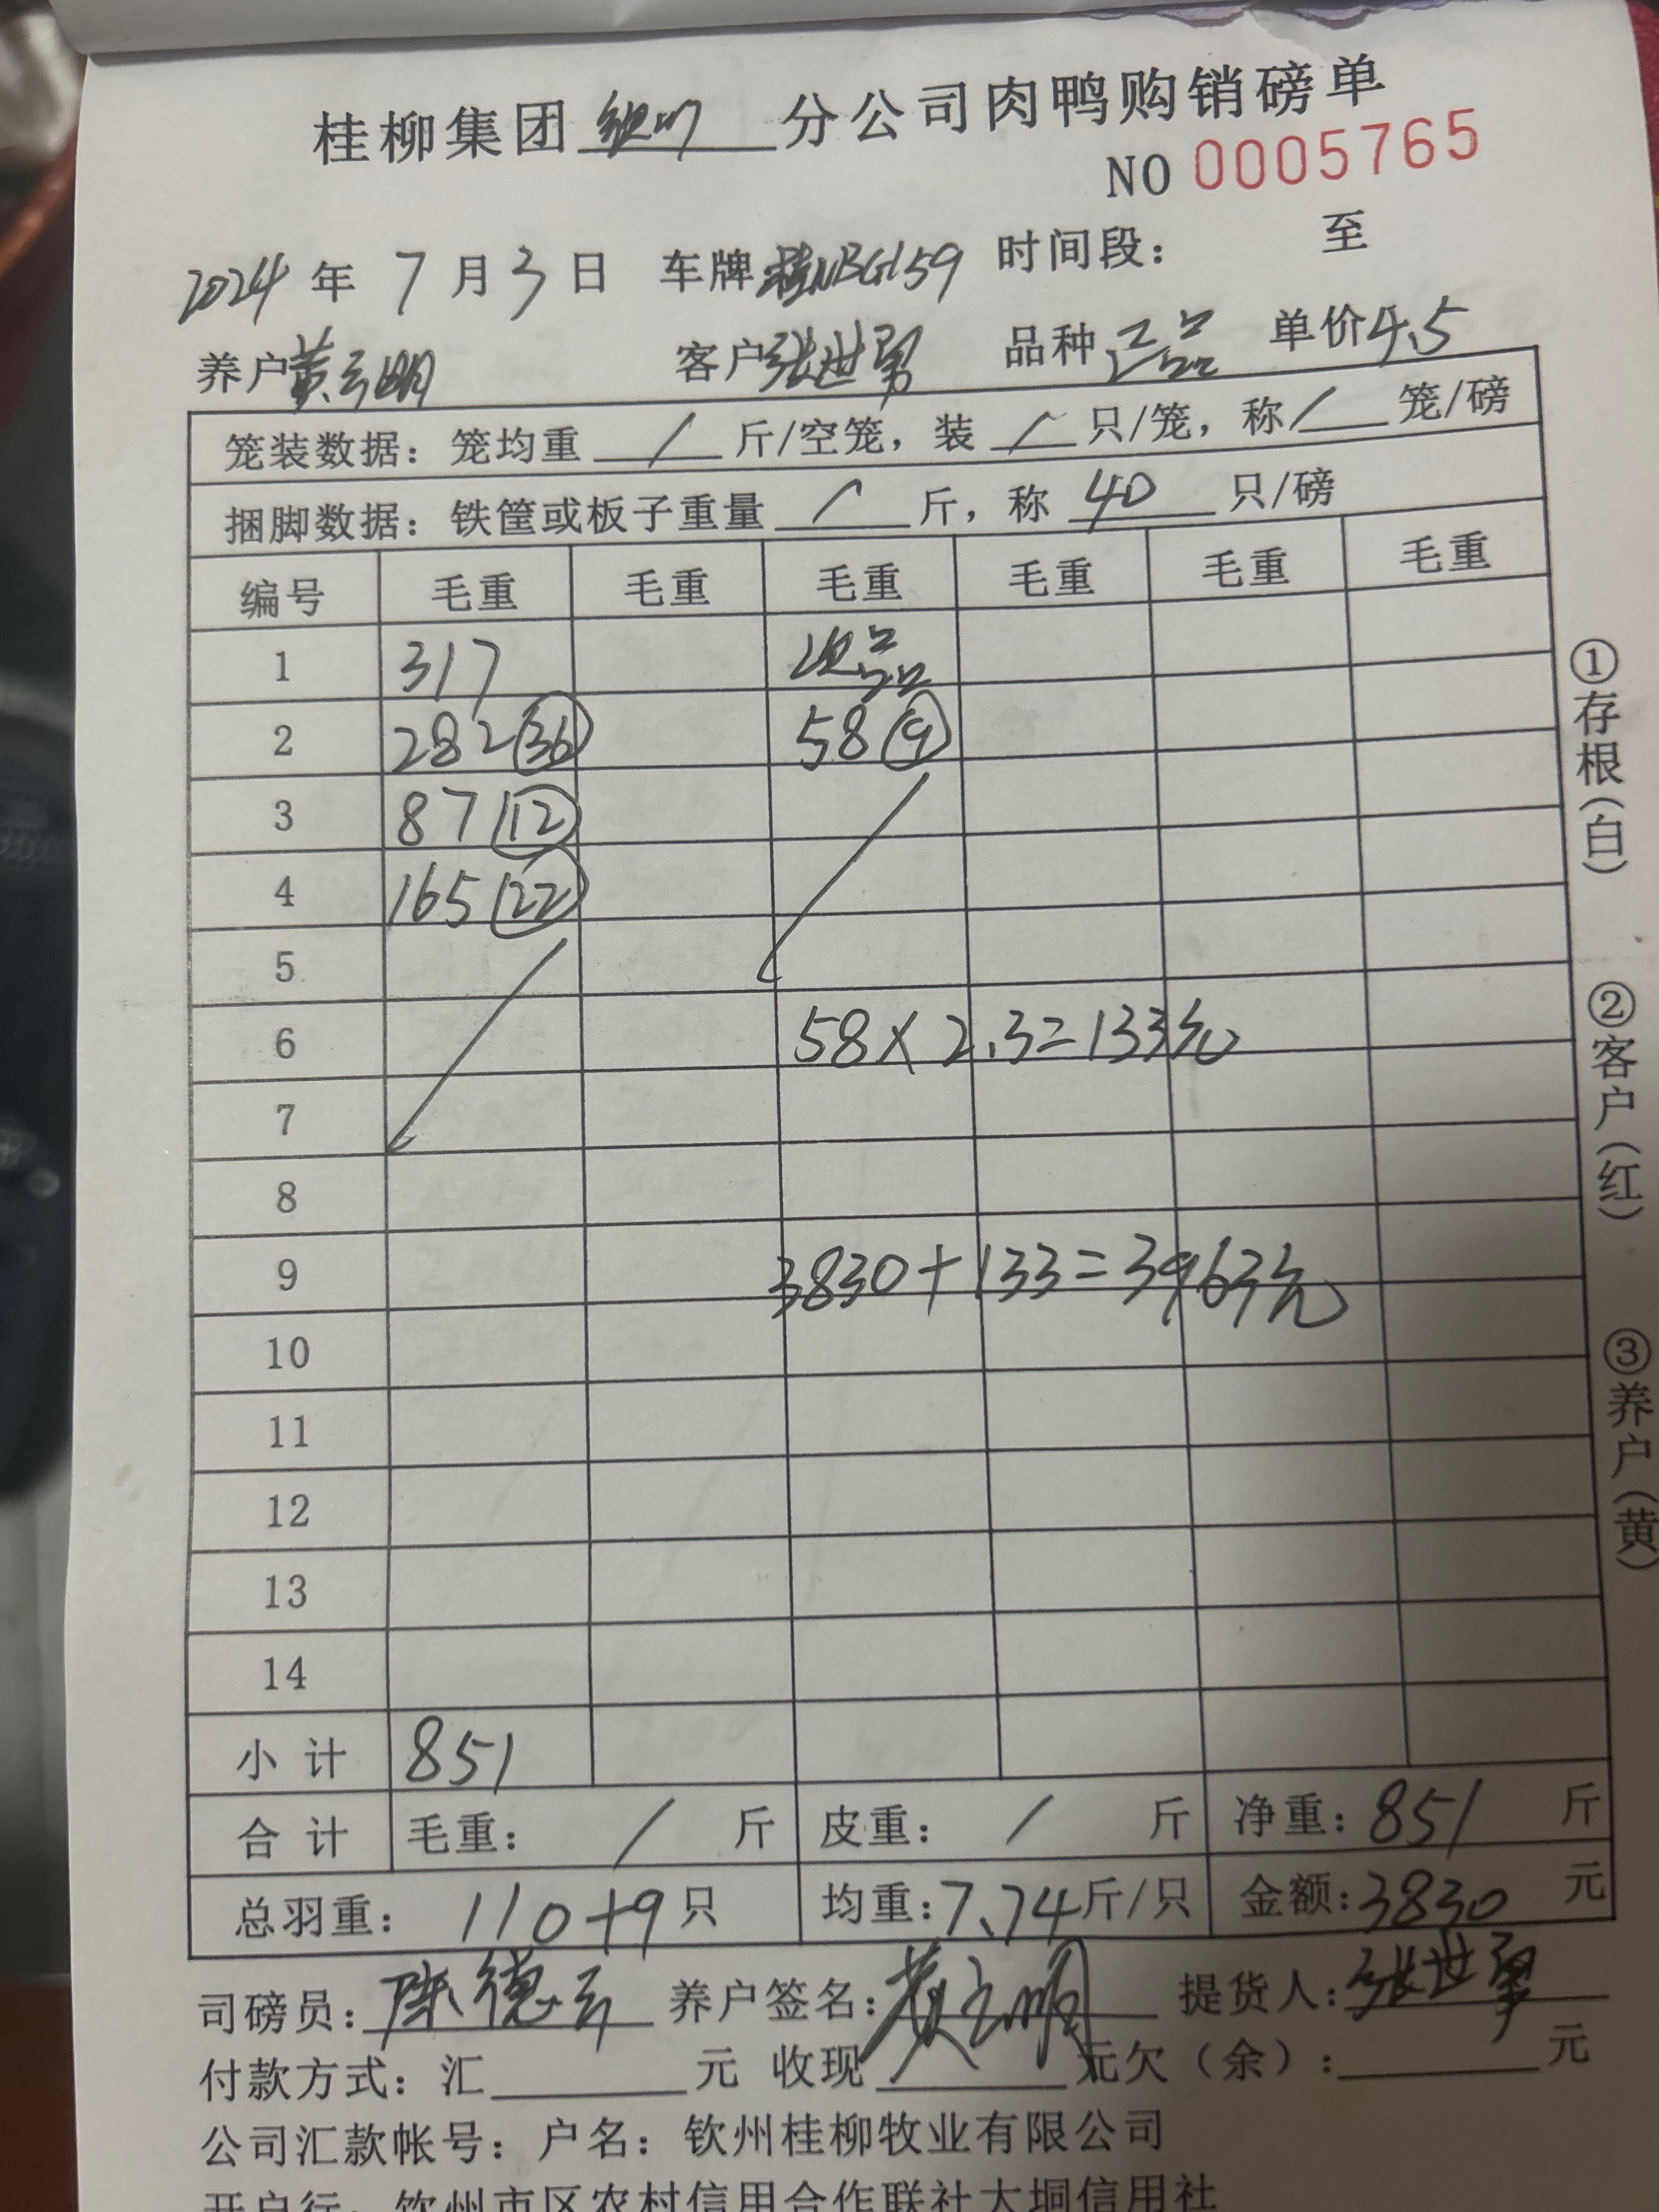 桂柳集团 钦州 分公司肉鸭购销磅单
NO 0005765
2024 年 7 月 3 日 车牌 桂NBG159 时间段: 至
养户 黄云明 客户 张世勇 品种 正品 单价 4.5
笼装数据: 笼均重 / 斤/空笼, 装 / 只/笼, 称 / 笼/磅
捆脚数据: 铁筐或板子重量 / 斤, 称 40 只/磅
编号 毛重 毛重 毛重 毛重 毛重 毛重
1 317 次品
2 282 (36) 58 (9)
3 87 (12)
4 165 (22)
5
6 58×2.3=133元
7
8
9 3830+133=3963元
10
11
12
13
14
小计 851
合计 毛重: / 斤 皮重: / 斤 净重: 851 斤
总羽重: 110+9 只 均重: 7.74 斤/只 金额: 3830 元
司磅员: 陈德云 养户签名: 黄云明 提货人: 张世勇
付款方式: 汇 元 收现 元 欠(余): 元
公司汇款帐号: 户名: 钦州桂柳牧业有限公司
开户行: 钦州市区农村信用合作联社大垌信用社
①存根(白)
②客户(红)
③养户(黄)